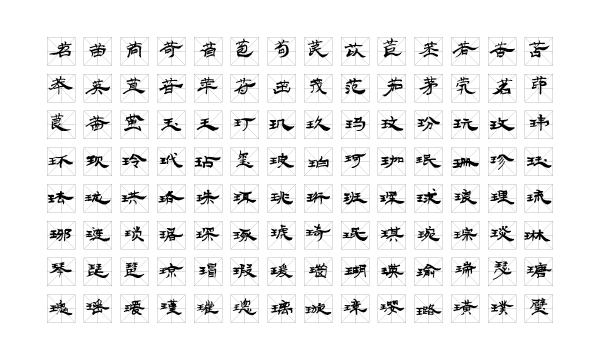 苕苗苘苛苜苞苟苠苡苣苤若苦苫
苯英苴苷苹苻茁茂范茄茅茕茗
茧玉王玎玑玖玛玟玢玩玫玮
环现玲玳玷玺玻珀珂珈珉珊珍珏
珐珑珙珞珠珥珧珩班球琅理琉
琊琏琐琚琛琢琥琦琨琪琬琮琰琳
琴琵琶琼瑁瑕瑗瑙瑚瑛瑜瑞瑟瑭
瑰瑶瑷瑾璀璁璃璇璋璎璐璜璞璧